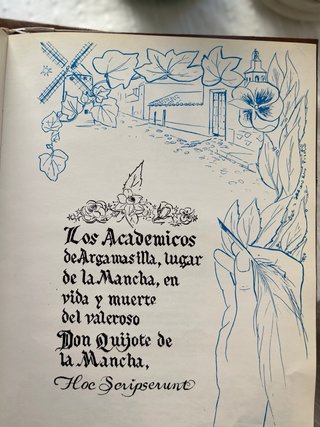 Los Academicos
de Argamasilla, lugar
de la Mancha, en
vida y muerte
del valeroso
Don Quijote de
la Mancha,
Hoc Scripserunt